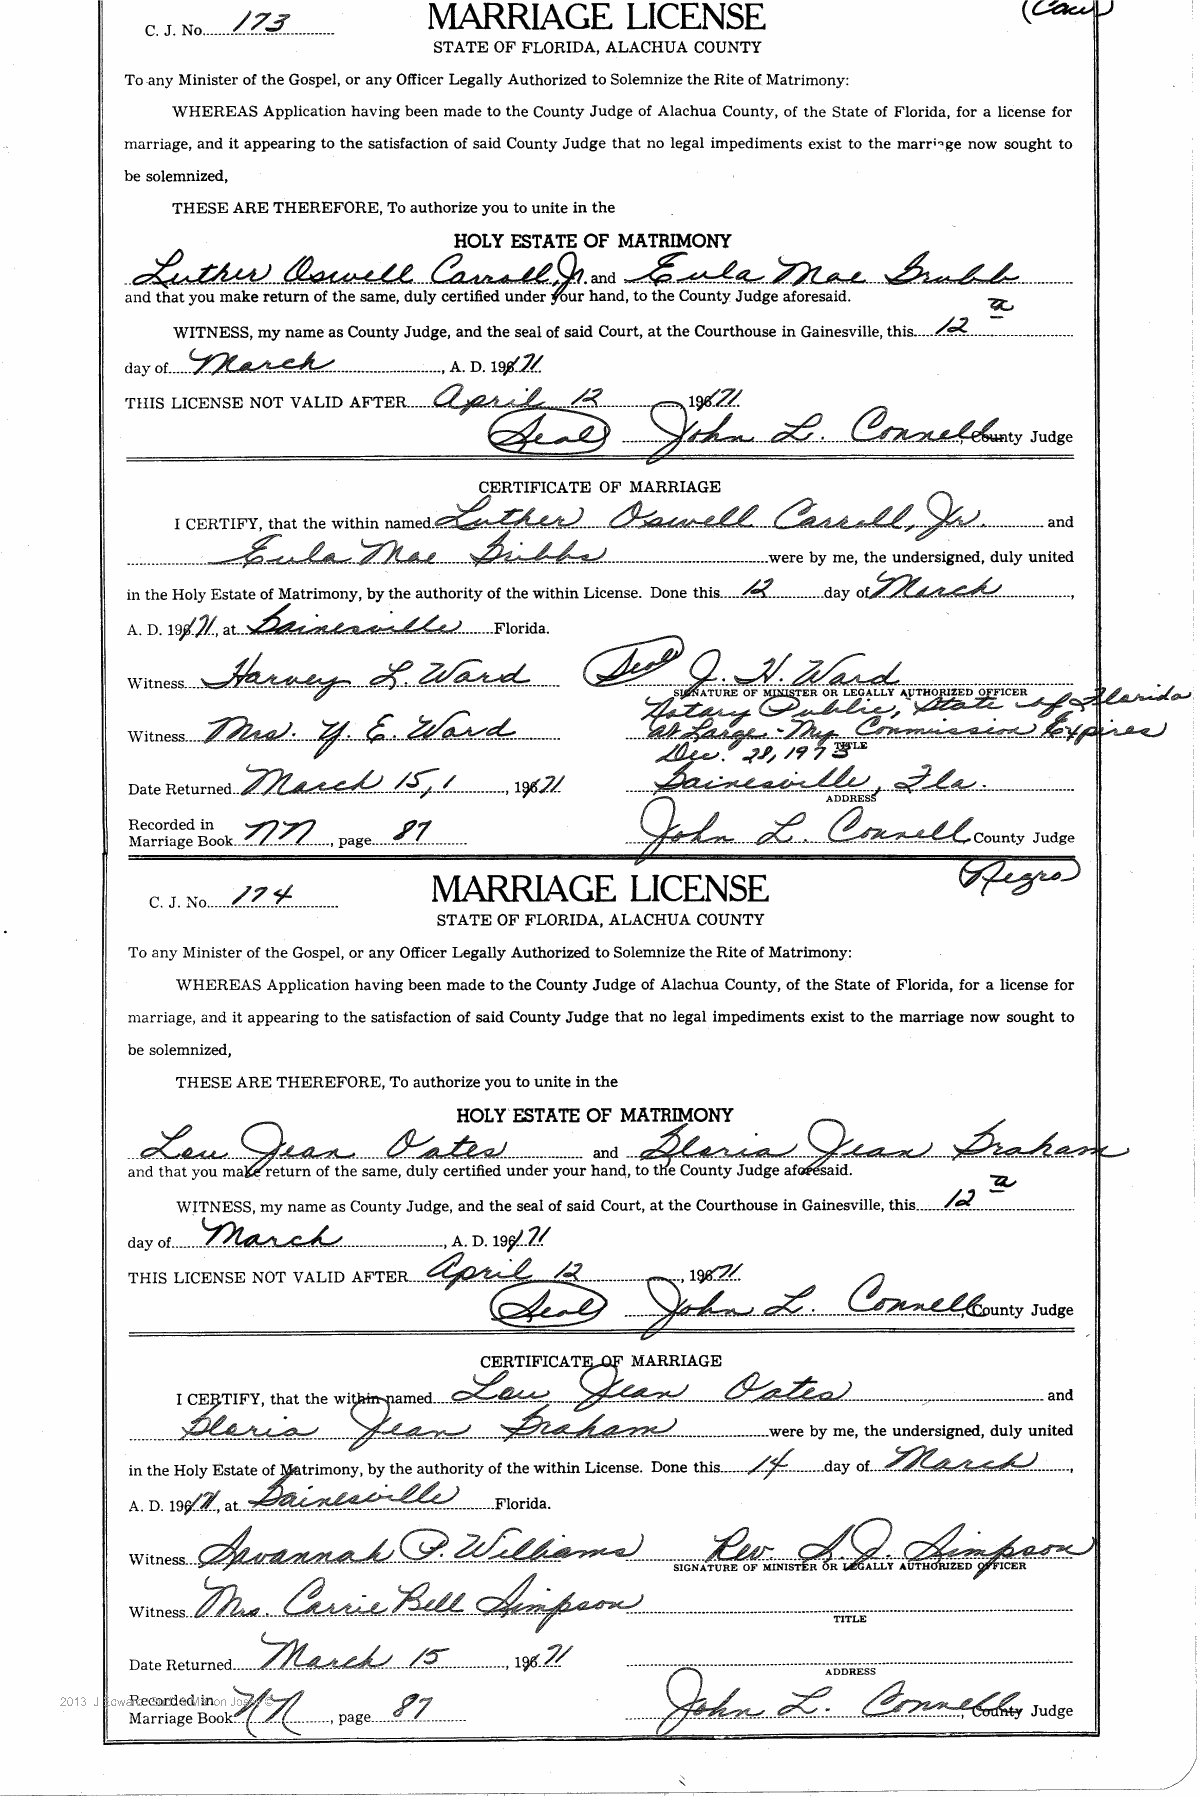 (Cau)
C. J. No. 173 MARRIAGE LICENSE
STATE OF FLORIDA, ALACHUA COUNTY
To any Minister of the Gospel, or any Officer Legally Authorized to Solemnize the Rite of Matrimony:
WHEREAS Application having been made to the County Judge of Alachua County, of the State of Florida, for a license for
marriage, and it appearing to the satisfaction of said County Judge that no legal impediments exist to the marriage now sought to
be solemnized,
THESE ARE THEREFORE, To authorize you to unite in the
HOLY ESTATE OF MATRIMONY
Luther Oswell Carroll, Jr. and Eula Mae Grubb
and that you make return of the same, duly certified under your hand, to the County Judge aforesaid.
WITNESS, my name as County Judge, and the seal of said Court, at the Courthouse in Gainesville, this 12
day of March, A. D. 1971
THIS LICENSE NOT VALID AFTER April 12 1971
(Seal) John L. Connell County Judge
CERTIFICATE OF MARRIAGE
I CERTIFY, that the within named Luther Oswell Carroll, Jr. and
Eula Mae Gibbs were by me, the undersigned, duly united
in the Holy Estate of Matrimony, by the authority of the within License. Done this 12 day of March,
A. D. 1971, at Gainesville Florida.
Witness Harvey L. Ward (Seal) J. H. Ward
SIGNATURE OF MINISTER OR LEGALLY AUTHORIZED OFFICER
Notary Public, State of Florida
Witness Mrs. Y. E. Ward at Large - My Commission Expires
Dec. 28, 1973 TITLE
Date Returned March 15, 1, 1971 Gainesville, Fla.
ADDRESS
Recorded in
Marriage Book NN, page 87 John L. Connell County Judge
Negro
C. J. No. 174 MARRIAGE LICENSE
STATE OF FLORIDA, ALACHUA COUNTY
To any Minister of the Gospel, or any Officer Legally Authorized to Solemnize the Rite of Matrimony:
WHEREAS Application having been made to the County Judge of Alachua County, of the State of Florida, for a license for
marriage, and it appearing to the satisfaction of said County Judge that no legal impediments exist to the marriage now sought to
be solemnized,
THESE ARE THEREFORE, To authorize you to unite in the
HOLY ESTATE OF MATRIMONY
Lou Jean Oates and Gloria Jean Graham
and that you make return of the same, duly certified under your hand, to the County Judge aforesaid.
WITNESS, my name as County Judge, and the seal of said Court, at the Courthouse in Gainesville, this 12
day of March, A. D. 1971
THIS LICENSE NOT VALID AFTER April 12, 1971
(Seal) John L. Connell County Judge
CERTIFICATE OF MARRIAGE
I CERTIFY, that the within named Lou Jean Oates and
Gloria Jean Graham were by me, the undersigned, duly united
in the Holy Estate of Matrimony, by the authority of the within License. Done this 14 day of March,
A. D. 1971, at Gainesville Florida.
Witness Savannah P. Williams Rev. S. J. Simpson
SIGNATURE OF MINISTER OR LEGALLY AUTHORIZED OFFICER
Witness Mrs. Carrie Bell Simpson
TITLE
Date Returned March 15, 1971
ADDRESS
Recorded in
Marriage Book NN, page 87 John L. Connell County Judge